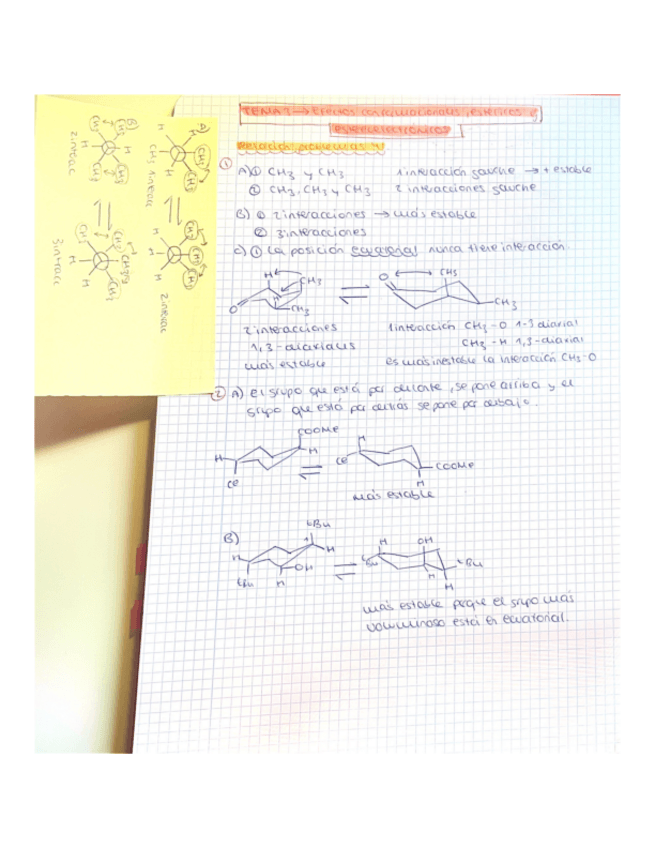 TEMA 1 → Efectos conformacionales, estéricos y
estereoelectrónicos
Relación problemas 1
①
A) ① CH3 y CH3 1 interacción gauche → + estable
② CH3-CH3 y CH3 2 interacciones gauche
B) ① 2 interacciones → más estable
② 3 interacciones
C) ① La posición ecuatorial nunca tiene interacción.
H CH3 O CH3
H
O CH3 CH3
2 interacciones 1 interacción CH3-O 1-3 diaxial
1,3-diaxiales CH3-H 1,3-diaxial
más estable es más inestable la interacción CH3-O
② A) el grupo que está por delante, se pone arriba y el
grupo que está por detrás se pone por debajo.
COOMe
H H H
Cl COOMe
Cl H
más estable
B) tBu
H H H OH
OH tBu tBu
tBu H H
H
más estable porque el grupo más
voluminoso está en ecuatorial.
A)
H CH3
CH3
H H
CH3 1 interacc
CH3
CH3
CH3
H H
H
2 interac
B)
CH3 CH3 H
H CH3
CH3
2 interac
CH3 CH3
CH3
H H
CH3
3 interacc